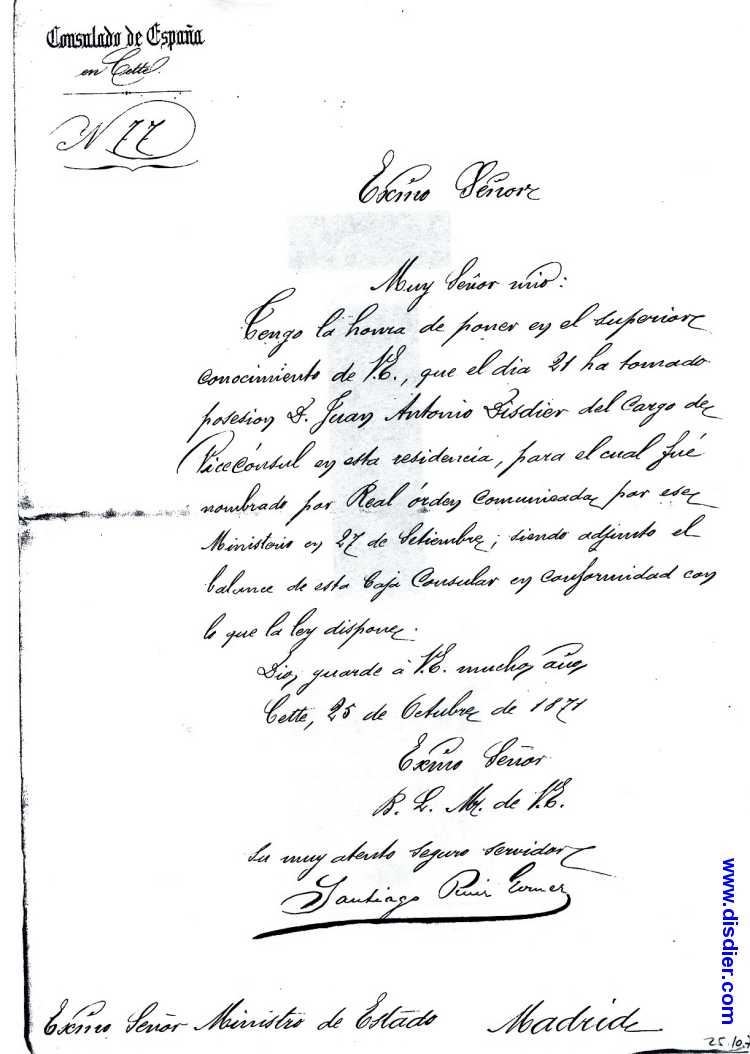 Consulado de España
en Cette.
N 77
Exmo Señor
Muy Señor mio:
Tengo la honra de poner en el superior
conocimiento de V.E., que el dia 21 ha tomado
posesion D. Juan Antonio Disdier del Cargo de
Vicecónsul en esta residencia, para el cual fué
nombrado por Real órden comunicada por ese
Ministerio en 27 de Setiembre; siendo adjunto el
balance de esta Caja Consular en conformidad con
lo que la ley dispone.
Dios guarde á V.E. muchos años
Cette, 25 de Octubre de 1871
Exmo Señor
B. L. M. de V.E.
Su muy atento seguro servidor
Santiago
Exmo Señor Ministro de Estado Madrid
www.disdier.com
25.10.7